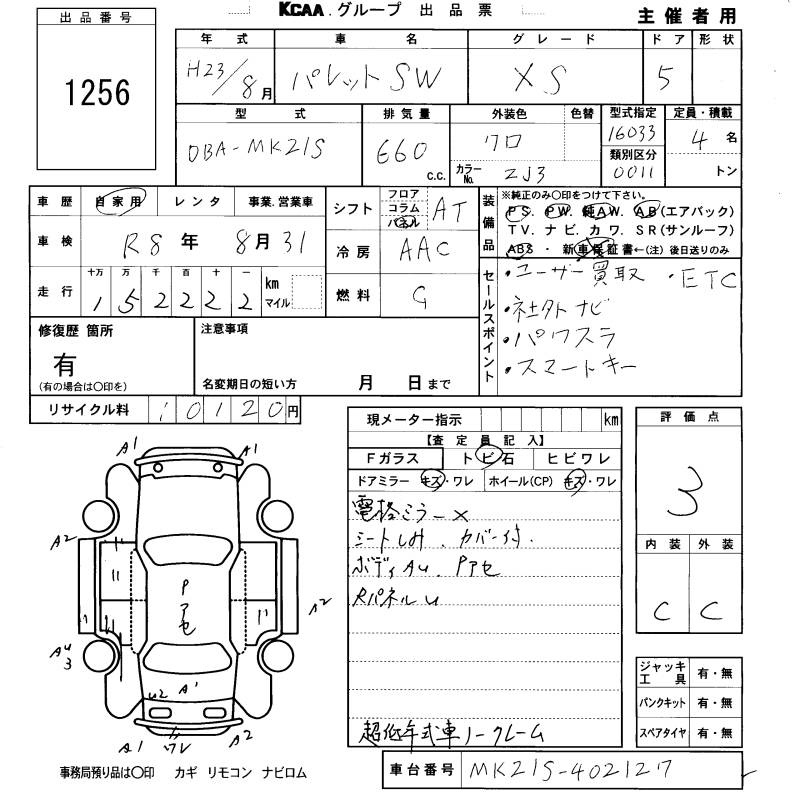 KCAA.グループ 出品票
主催者用
出品番号
1256
年式 車名 グレード ドア 形状
H23/8月 パレットSW XS 5
型式 排気量 外装色 色替 型式指定 定員・積載
DBA-MK21S 660 c.c. クロ 16033 4名
カラーNo. ZJ3 類別区分 0011 トン
車歴 自家用 レンタ 事業.営業車
車検 R8年 8月31
走行 十万 万 千 百 十 一 km マイル
152222
シフト フロア コラム パネル AT
冷房 AAC
燃料 G
装備品
※純正のみ〇印をつけて下さい。
PS. PW. 純AW. AB(エアバック)
TV. ナビ. カワ. SR(サンルーフ)
ABS ・ 新車保証書←(注)後日送りのみ
セールスポイント
・ユーザー買取 ・ETC
・社外ナビ
・パワスラ
・スマートキー
修復歴 箇所
有
(有の場合は〇印を)
注意事項
名変期日の短い方 月 日まで
リサイクル料 10120円
現メーター指示 km
【査定員記入】
Fガラス トビ石 ヒビワレ
ドアミラー キズ・ワレ ホイール(CP) キズ・ワレ
電格ミラー×
シートしみ. カバー付.
ボディAU. Pアセ
Rパネルu
超低年式車ノークレーム
評価点
3
内装 外装
C C
ジャッキ工具 有・無
パンクキット 有・無
スペアタイヤ 有・無
車台番号 MK21S-402127
A1 A1
A2
A2
P
アセ
AU
3
U2 A1
A1 ワレ A2
事務局預り品は〇印 カギ リモコン ナビロム